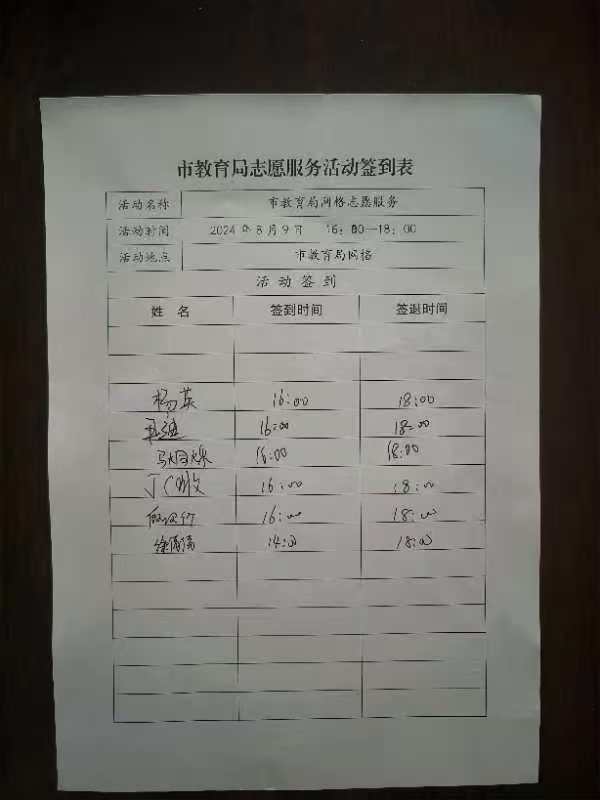 市教育局志愿服务活动签到表
活动名称 市教育局网格志愿服务
活动时间 2024年8月9日 16：00—18：00
活动地点 市教育局网格
活动签到
姓名 签到时间 签退时间
杨英 16:00 18:00
16:00 18:00
16:00 18:00
16:00 18:00
16:00 18:00
14:00 18:00